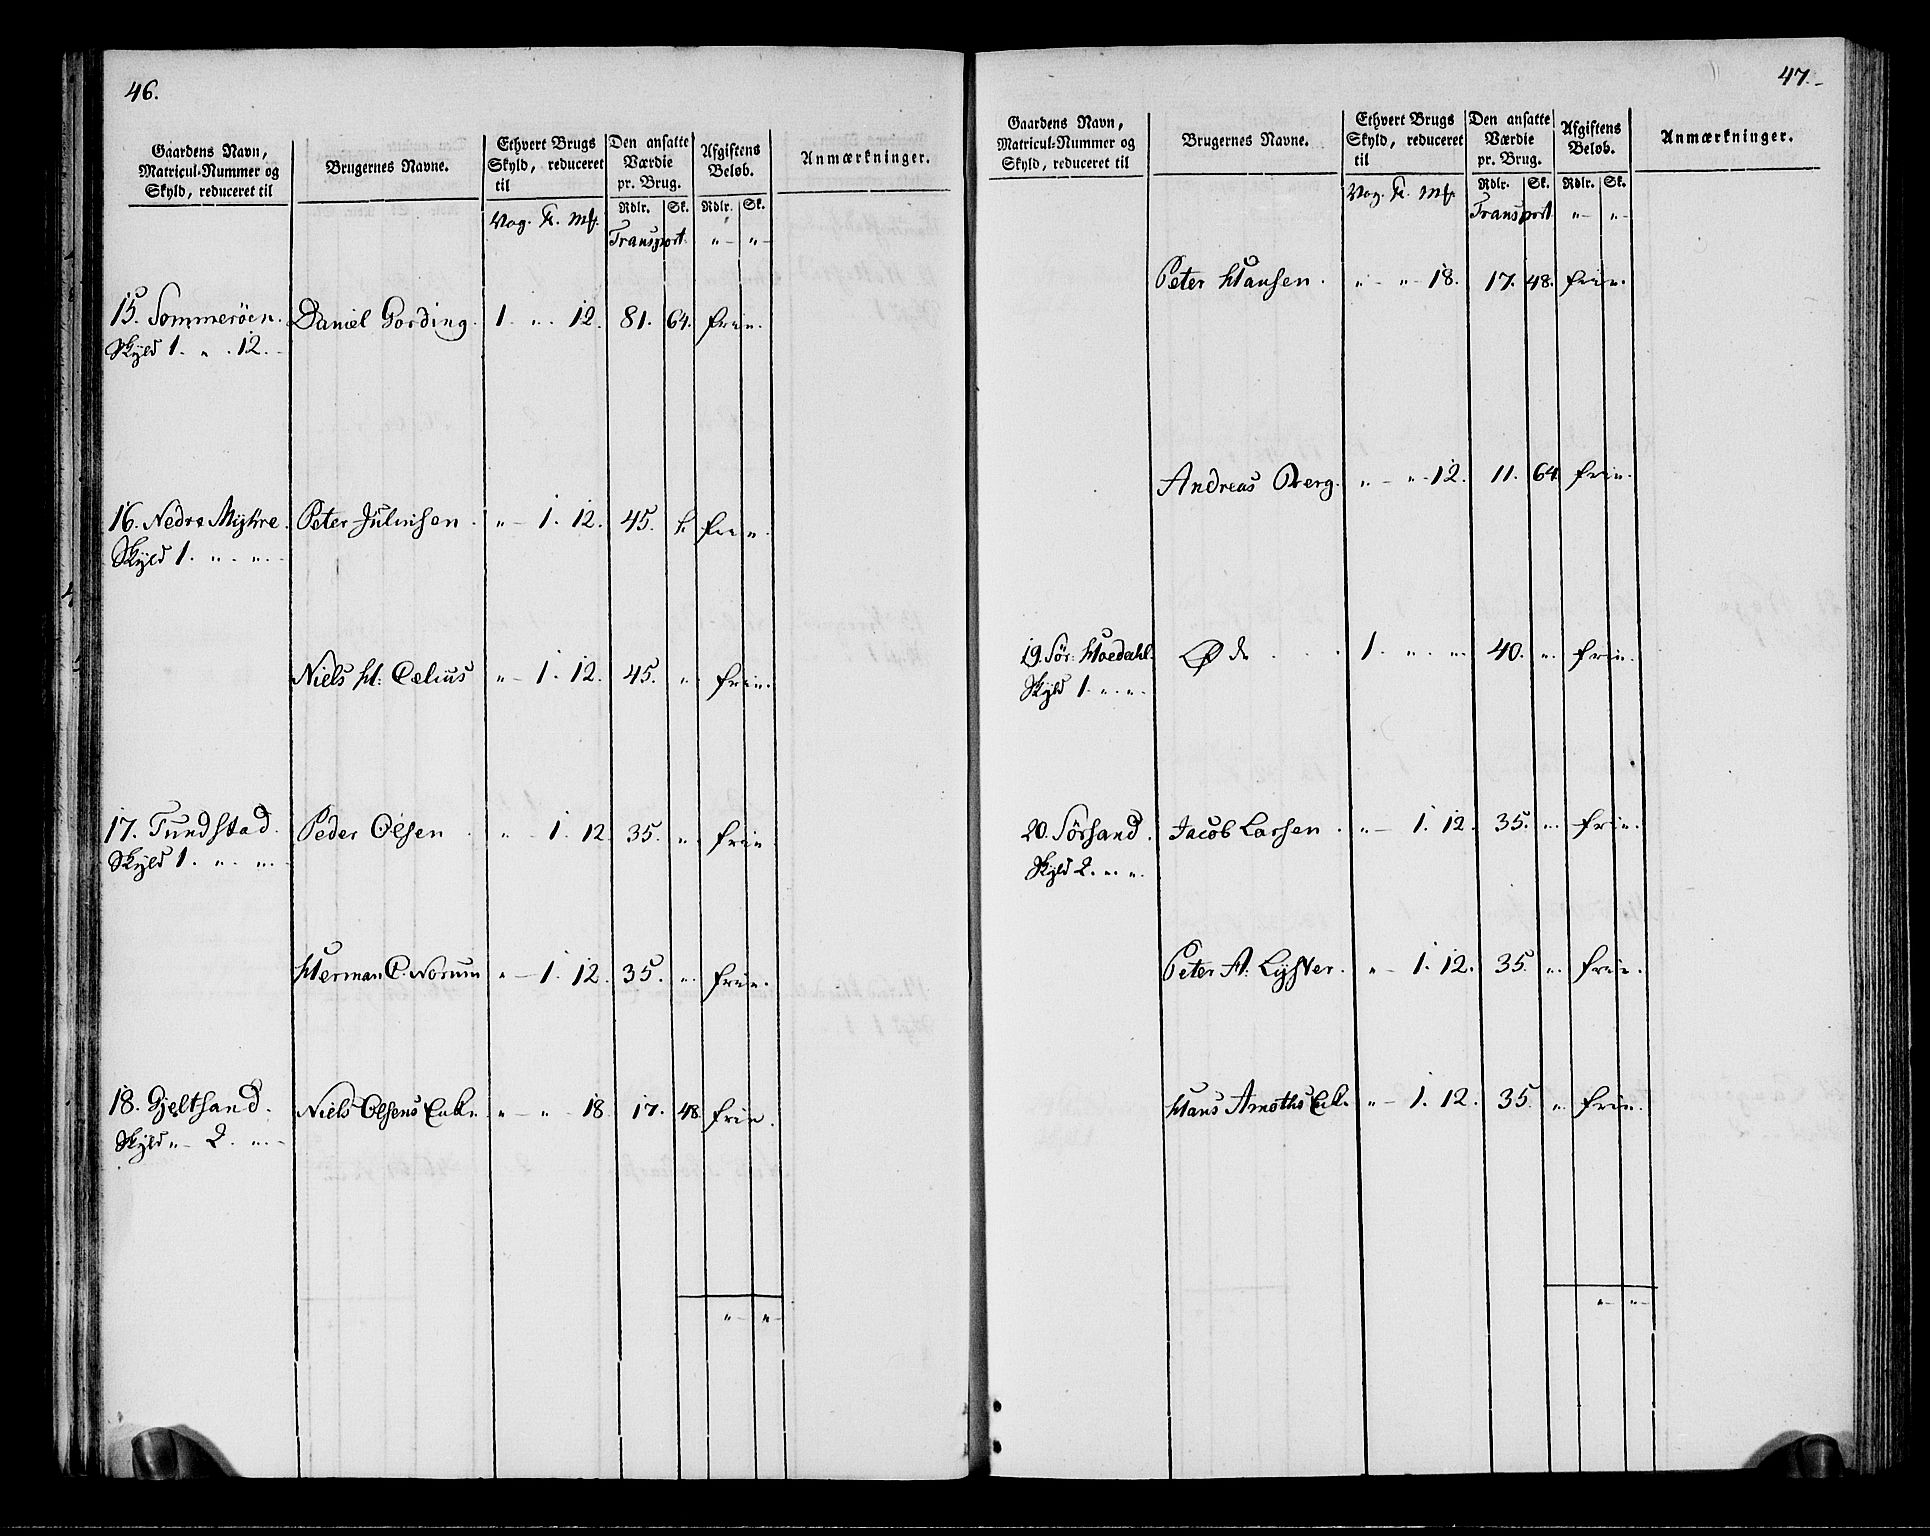 46.
Gaardens Navn, Matricul-Nummer og Skyld, reduceret til
Brugernes Navne.
Ethvert Brugs Skyld, reduceret til
Den ansatte Værdie pr. Brug.
Afgiftens Beløb.
Anmærkninger.
Rdlr. Sk. Rdlr. Sk.
Vog. Mk.
Transport. " — " —
15. Sommeröen. Daniel Gording. 1. " . 12. 81. 64. frie.
Skyld 1. " . 12.
16. Nedre Myhre. Peter Julinsen. " — 1. 12. 45. frie.
Skyld 1. " . " .
Niels H: Celius " — 1. 12. 45. " . frie.
17. Tundstad. Peder Olsen . " — 1. 12. 35. " . frie.
Skyld 1. " . " .
Herman C. Norum " — 1. 12. 35. " . frie.
18. Gjeltsand. Niels Olsens Enke " — " — 18. 17. 48. frie.
Skyld " — 2. " . —
" — " —
47. —
Gaardens Navn, Matricul-Nummer og Skyld, reduceret til
Brugernes Navne.
Ethvert Brugs Skyld, reduceret til
Den ansatte Værdie pr. Brug.
Afgiftens Beløb.
Anmærkninger.
Rdlr. Sk. Rdlr. Sk.
Vog. Mk.
Transport " — " —
Peter Hansen. " — " — 18. 17. 48. frie.
Andreas Berg. " — " — 12. 11. 64. frie.
19. Sör: Hoedahl. Øde . . 1. " . " . 40. " . frie.
Skyld 1. " . " .
20. Sörsand. Jacob Larsen . " — 1. 12. 35. " . frie.
Skyld 2. " . " .
Peter A: Lyster. " — 1. 12. 35. " . frie.
Hans Arnoths Enk. " — 1. 12. 35. " . frie.
" — " —